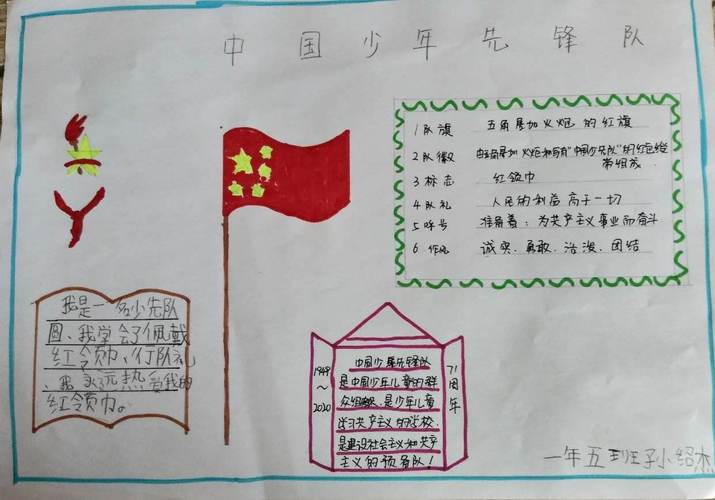 中国少年先锋队
1队旗 五角星加火炬的红旗
2队徽 由五角星加火炬和写有"中国少先队"的红色绶
带组成
3标志 红领巾
4队礼 人民的利益高于一切
5呼号 准备着:为共产主义事业而奋斗
6作风 诚实、勇敢、活泼、团结
我是一名少先队
员、我学会了佩戴
红领巾、行队礼
、我永远热爱我的
红领巾。
1949~2020
中国少年先锋队
是中国少年儿童的群
众组织、是少年儿童
学习共产主义的学校、
是建设社会主义和共产
主义的预备队!
71周年
一年五班孙绍杰